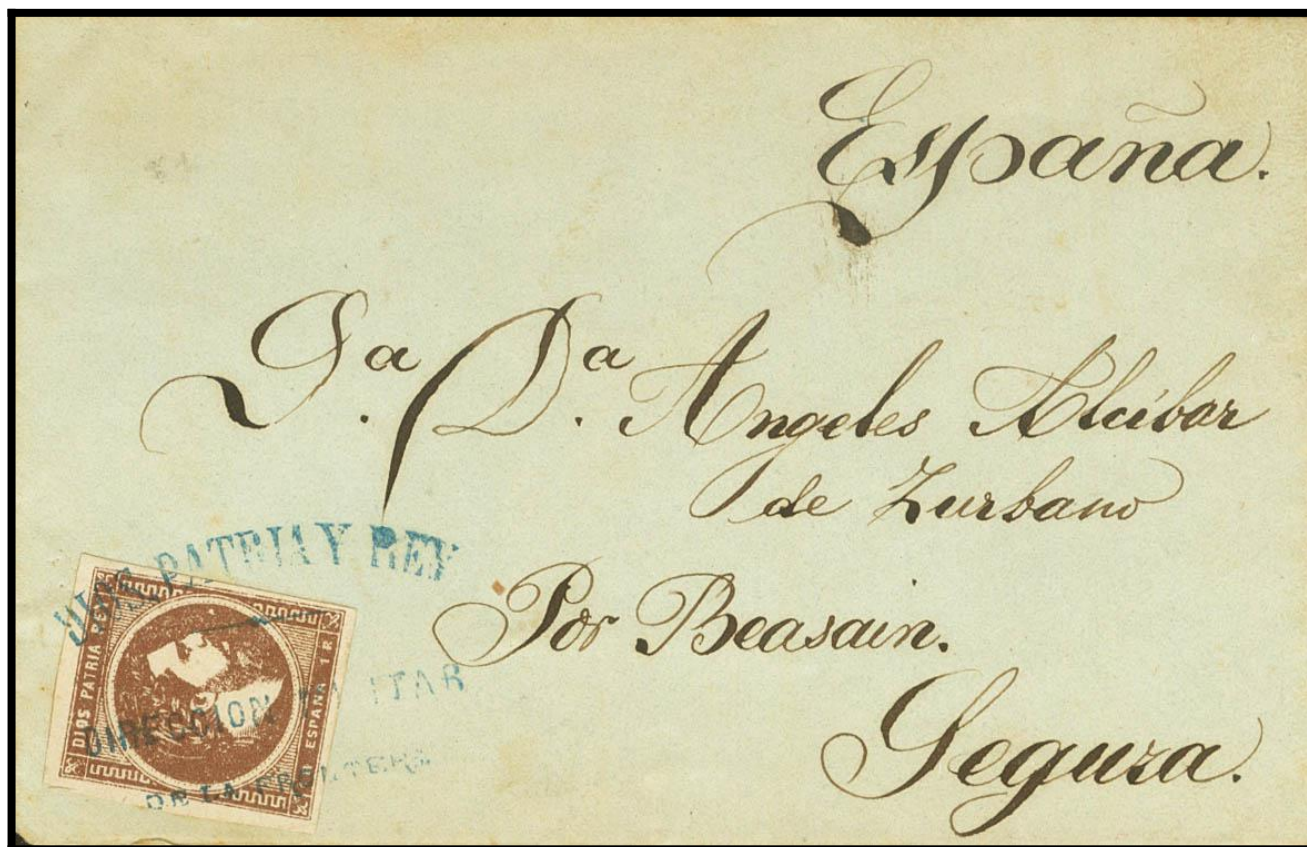 España.
Sa. Da. Angeles Alcibar
de Zurbano
Por Beasain.
Segura.
DIOS PATRIA Y REY
DIRECCION MILITAR
DE LA FRONTERA
DIOS PATRIA REY
ESPAÑA 1 R.